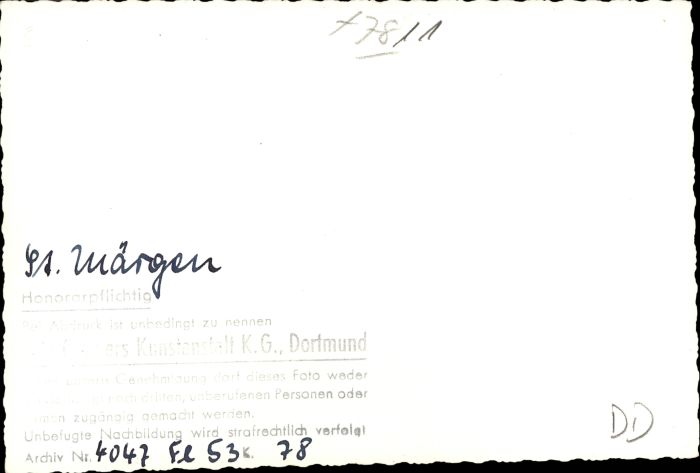 78/1
St. Märgen
Honorarpflichtig
Bei Abdruck ist unbedingt zu nennen
Kunstanstalt K.G., Dortmund
Genehmigung darf dieses Foto weder
dritten, unberufenen Personen oder
zugängig gemacht werden.
Unbefugte Nachbildung wird strafrechtlich verfolgt
Archiv Nr. 4047 Fe 53 K. 78
DD